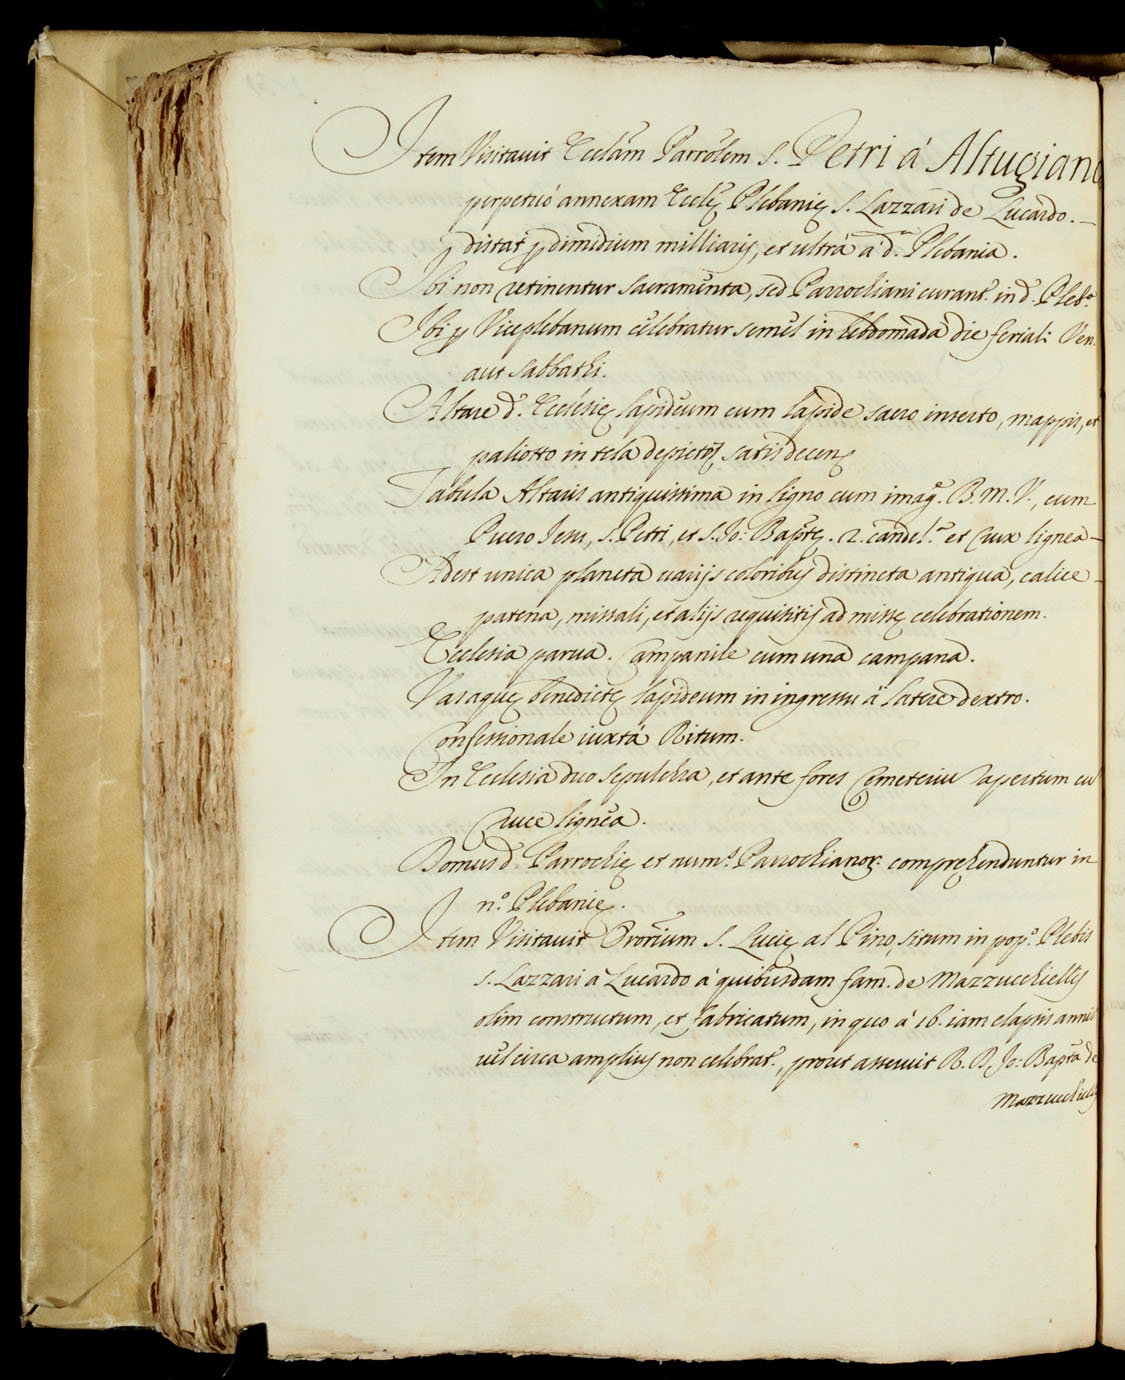 Item Visitauit Eccłam Parrołem S. Petri á Altugiano
perpetuó annexam Eccłę Plebanię S. Lazzari de Lucardo.
distat p dimidium milliaris, et ultrá á d.ª Plebania.
Ibi non retinentur Sacramenta, sed Parrochiani curant.r in d.ª Pleb.ª
Ibi p Viceplebanum celebratur semel in hebdomada die feriali Ven.
aut Sabbathi.
Altare d.ę Ecclesię lapideum cum lapide sacro inserto, mappis, et
paliotto in tela depicto, satis decens
Tabula Altaris antiquissima in ligno cum imag.e B. M. V., cum
Puero Iesu, S. Petri, et S. Jo: Baptę. 2. candel.ª et Crux lignea
Adest unica planeta uarijs coloribus distincta antiqua, calice
patena, missali, et alijs requisitis ad missę celebrationem.
Ecclesia parua. Campanile cum una campana.
Vas aquę benedictę lapideum in ingressu á latere dextro.
Confessionale iuxtá Ritum.
In Ecclesia duo sepulchra, et ante fores Cęmeteriu apertum cu
Cruce lignea.
Domus d.ę Parrochię et num.s Parrochianor. comprehenduntur in
n.º Plebanię.
Item Visitauit Ororium S. Lucię al Pino, situm in pop.º Plebis
S. Lazzari a Lucardo á quibusdam fam. de Mazzucchiellis
olim constructum, et fabricatum, in quo á 16. iam elapsis annis
uel circa amplius non celebrat.r, prout asseruit R. P. Jo: Bapta de
Mazzucchiellis